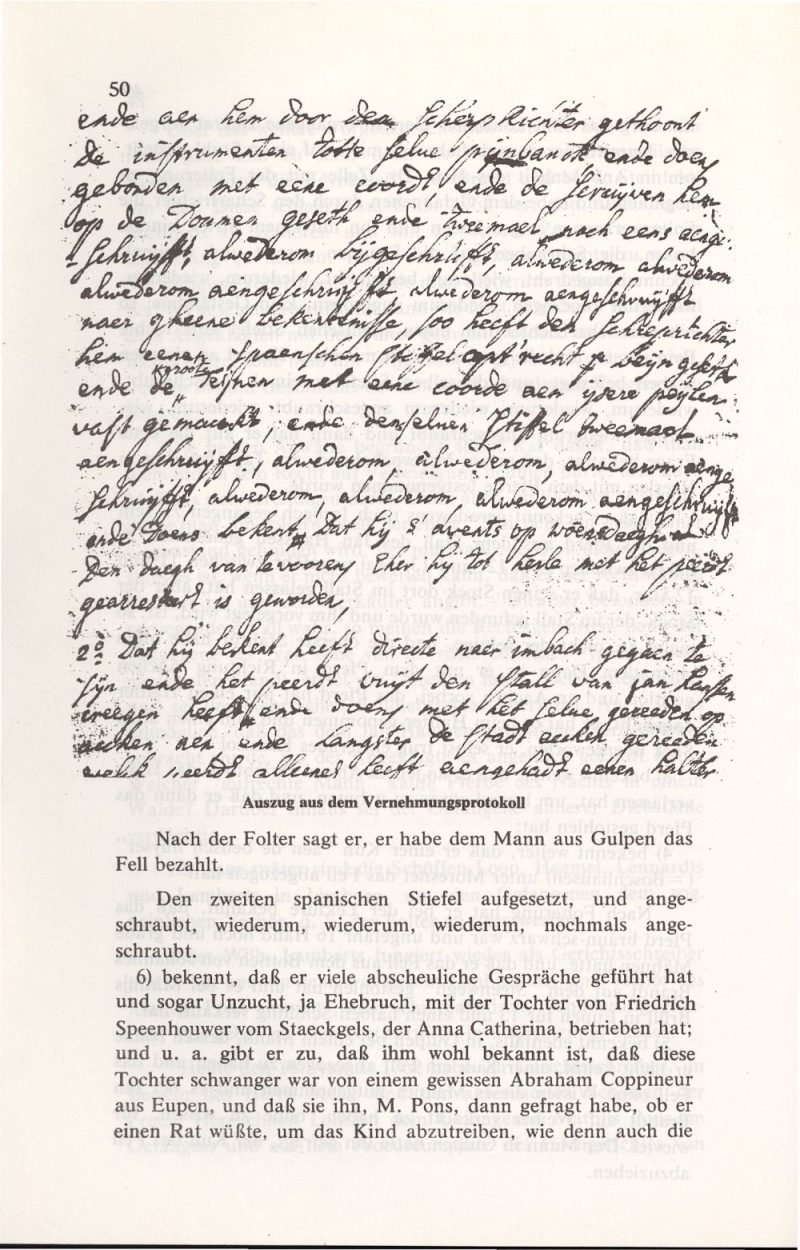 50
ende aen hem door den scherprichter gethoont
de instrumenten totte selve pijnbanck ende doens
gebonden met eene coordt ende de schruijven hem
op de Doumen geseth ende tweemael noch eens aenge-
schruijfft, alwederom bijgeschruijfft, alwederom alwederom
alwederom aengeschruijfft, alwederom aengeschruijfft
naer gheene bekentenisse, soo heeft den scherprichter
hem eenen spaenschen stiffel op't recht beijn geseth
ende de groote teijnen met eene coorde aen ijsere peijlen
vast gemaeckt, ende denselven stiffel tweemael
aengeschruijfft, alwederom, alwederom, alwederom aenge
schruijfft, alwederom, alwederom, alwederom aengeschruijfft
ende doens bekent, Dat hij s'avents op woensdaegh
Den daegh van tevoorens eher hij tot herle met het peerdt
gearresteert is geworden,
2º Dat hij bekent heeft directe naer imbach gegaen te
sijn ende het peerdt vuijt den stall van jan hansen
creegen heeft, ende doens met het selve gereeden op
aecken aen, ende langster de stadt aecken gereeden
welk peerdt alleenes heeft aengehadt eenen halter
Auszug aus dem Vernehmungsprotokoll
Nach der Folter sagt er, er habe dem Mann aus Gulpen das
Fell bezahlt.
Den zweiten spanischen Stiefel aufgesetzt, und ange-
schraubt, wiederum, wiederum, wiederum, nochmals ange-
schraubt.
6) bekennt, daß er viele abscheuliche Gespräche geführt hat
und sogar Unzucht, ja Ehebruch, mit der Tochter von Friedrich
Speenhouwer vom Staeckgels, der Anna Catherina, betrieben hat;
und u. a. gibt er zu, daß ihm wohl bekannt ist, daß diese
Tochter schwanger war von einem gewissen Abraham Coppineur
aus Eupen, und daß sie ihn, M. Pons, dann gefragt habe, ob er
einen Rat wüßte, um das Kind abzutreiben, wie denn auch die